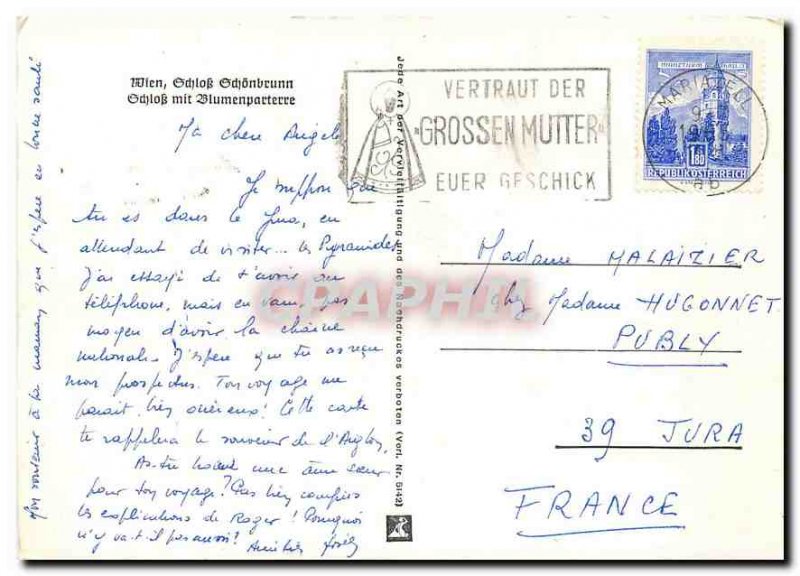 Wien, Schloß Schönbrunn
Schloß mit Blumenparterre
Ma chère Angèle
Je suppose que
tu es dans le Jura, en
attendant de visiter... les Pyramides
J'ai essayé de t'avoir au
téléphone, mais en vain, pas
moyen d'avoir la chaîne
nationale. J'espère que tu as reçu
mes prospectus. Ton voyage me
paraît bien onéreux! Cette carte
te rappellera le souvenir de l'Aiglon.
As-tu trouvé une âme sœur
pour ton voyage? Pas bien compris
les explications de Roger! Pourquoi
n'y va-t-il pas aussi? Amitiés
Mon souvenir à ta maman que j'espère en bonne santé
Jede Art der Vervielfältigung und des Nachdruckes verboten (Verl. Nr. 5142)
VERTRAUT DER
"GROSSEN MUTTER"
EUER GESCHICK
MARIAZELL
1.80
REPUBLIK ÖSTERREICH
Madame MALAIZIER
chez Madame HUGONNET
PUBLY
39 JURA
FRANCE
GRAPHIL